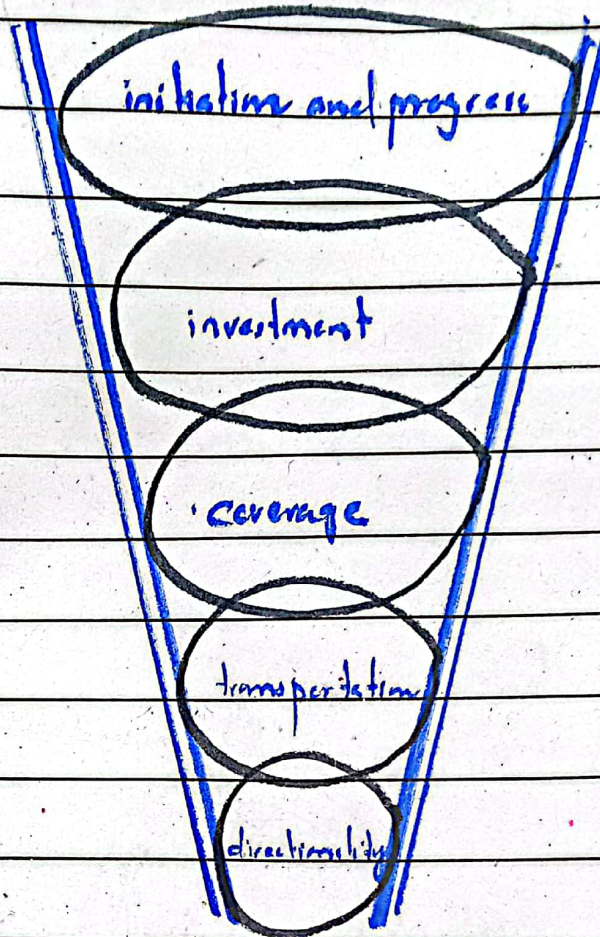 initiation and progress
investment
coverage
transportation
directionality